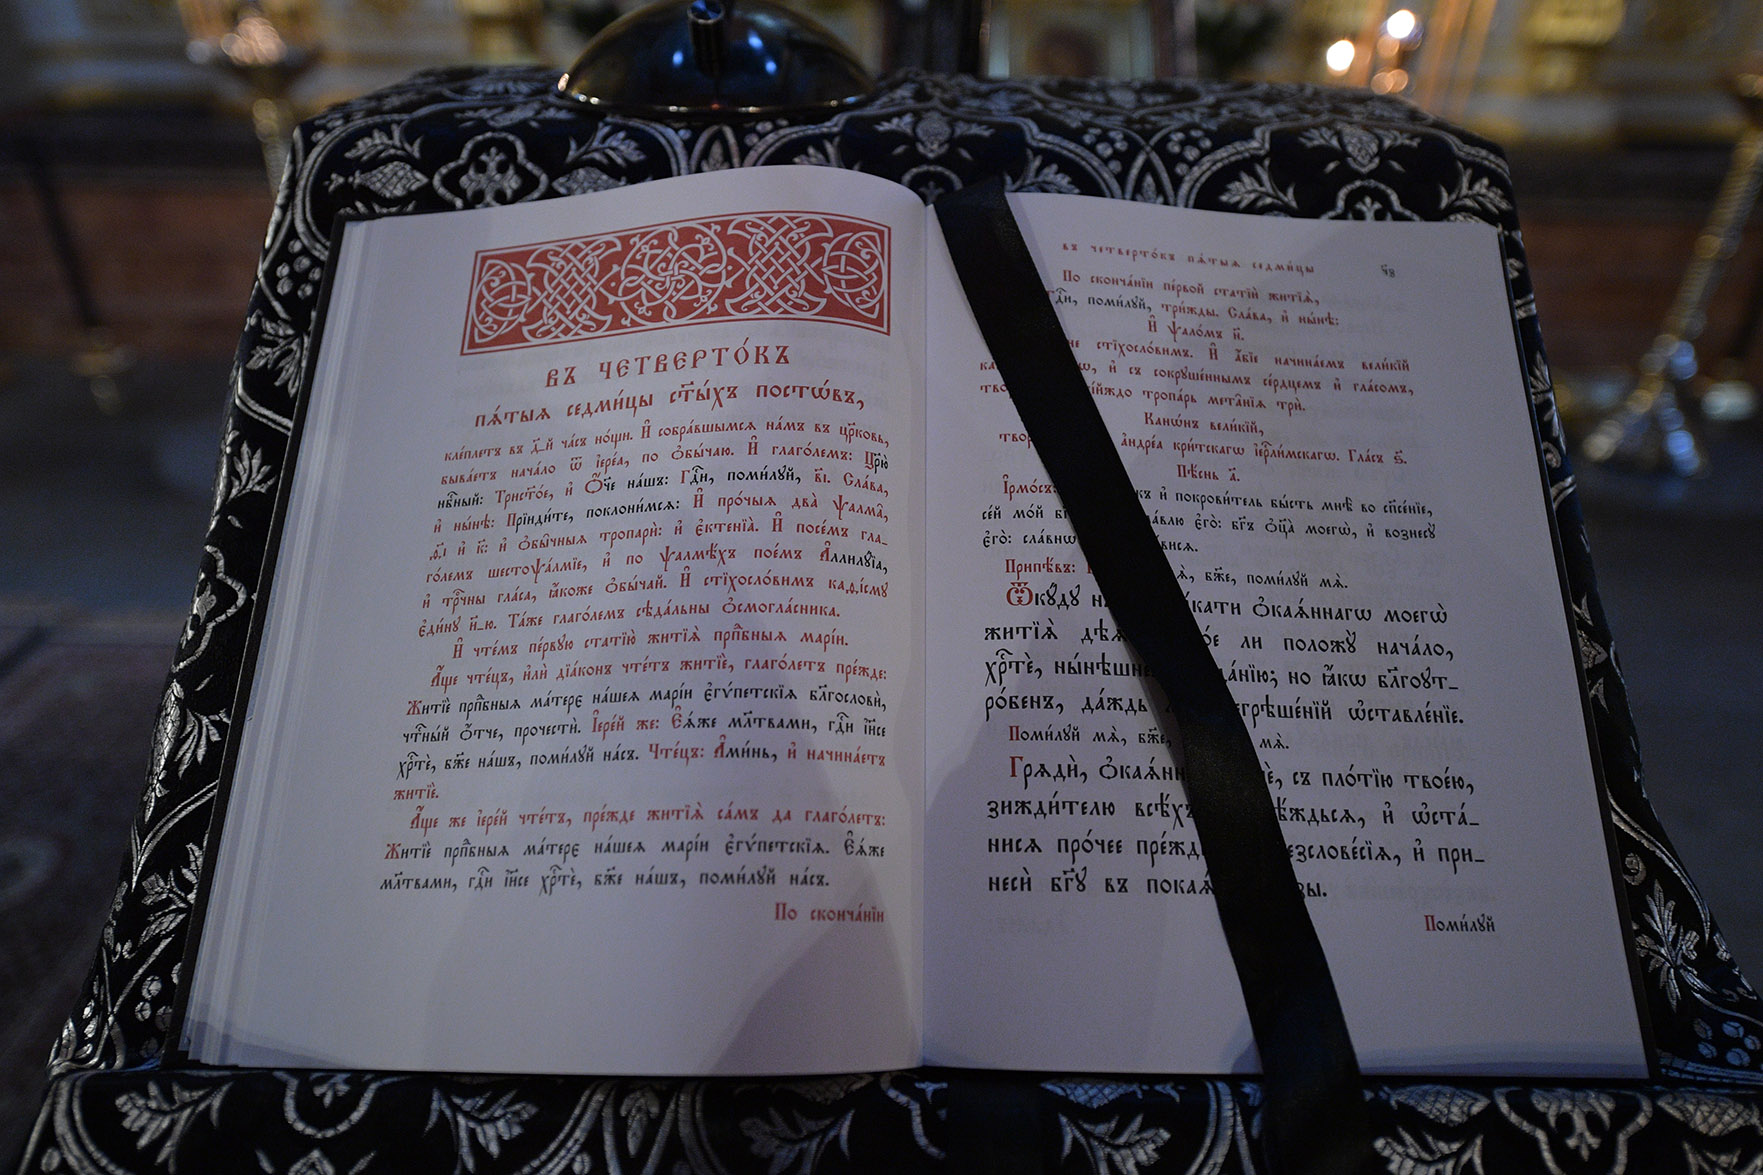 въ четверто́къ
пѧ́тыѧ седми́цы ст҃ы́хъ посто́въ,
кле́плетъ въ д҃_й ча́съ но́щи. И҆ собра́вшымсѧ на́мъ въ цр҃ковь,
быва́етъ нача́ло ѿ і҆ере́а, по ѻ҆бы́чаю. И҆ глаго́лемъ: Цр҃ю̀
нбⷭ҇ный: Трист҃о́е, и҆ Ѻ҆́ч҃е на́шъ: Гдⷭ҇и, поми́лꙋй, в҃і. Сла́ва,
и҆ ны́нѣ: Прїиди́те, поклони́мсѧ: И҆ про́чыѧ два̀ ѱалма̑,
ѳ҃і и҆ к҃: и҆ ѻ҆бы̑чныѧ тропарѝ: и҆ є҆ктенїа̀. И҆ посе́мъ гла_
го́лемъ шестоѱа́лмїе, и҆ по ѱалмѣ́хъ пое́мъ А҆ллилꙋ́їа,
и҆ трⷪ҇чны гла́са, ꙗ҆́коже ѻ҆бы́чай. И҆ стїхосло́вимъ каѳі́смꙋ
є҆ди́нꙋ и҃_ю. Та́же глаго́лемъ сѣда́льны ѻ҆смогла́сника.
И҆ чте́мъ пе́рвꙋю статїю̀ житїѧ̀ прпⷣбныѧ марі́и.
А҆́ще чте́цъ, и҆лѝ дїа́конъ чте́тъ житїѐ, глаго́летъ пре́жде:
Житїѐ прпⷣбныѧ ма́тере на́шеѧ марі́и є҆гѵ́петскїѧ блгⷭ҇ловѝ,
чтⷭ҇ны́й ѻ҆́тче, прочестѝ. І҆ере́й же: Є҆ѧ́же мл҃твами, гдⷭ҇и і҆и҃се
хрⷭ҇тѐ, бж҃е на́шъ, поми́лꙋй на́съ. Чте́цъ: А҆ми́нь, и҆ начина́етъ
житїѐ.
А҆́ще же і҆ере́й чте́тъ, пре́жде житїѧ̀ са́мъ да глаго́летъ:
Житїѐ прпⷣбныѧ ма́тере на́шеѧ марі́и є҆гѵ́петскїѧ. Є҆ѧ́же
мл҃твами, гдⷭ҇и і҆и҃се хрⷭ҇тѐ, бж҃е на́шъ, поми́лꙋй на́съ.
По сконча́нїи
въ четверто́къ пѧ́тыѧ седми́цы
По сконча́нїи пе́рвой статїѝ житїѧ̀,
Гдⷭ҇и, поми́лꙋй, три́жды. Сла́ва, и҆ ны́нѣ:
И҆ ѱало́мъ н҃.
не стїхосло́вимъ. И҆ а҆́бїе начина́емъ вели́кїй
и҆ съ сокрꙋше́ннымъ се́рдцемъ и҆ гла́сомъ,
тропа́рь мета̑нїѧ трѝ.
Канѡ́нъ вели́кїй,
а҆ндре́а кри́тскагѡ і҆ерⷭ҇ли́мскагѡ. Гла́съ ѕ҃.
Пѣ́снь а҃.
І҆рмо́съ: и҆ покрови́тель бы́сть мнѣ̀ во сп҃се́нїе,
се́й мо́й є҆го̀: бг҃ъ ѻ҆ц҃а̀ моегѡ̀, и҆ вознесꙋ̀
є҆го̀:
Припѣ́въ: бж҃е, поми́лꙋй мѧ̀.
Ѿкꙋ́дꙋ ѻ҆каѧ́ннагѡ моегѡ̀
житїѧ̀ ли положꙋ̀ нача́ло,
хрⷭ҇тѐ, но ꙗ҆́кѡ бл҃гоꙋт_
ро́бенъ, да́ждь ѡ҆ставле́нїе.
Поми́лꙋй мѧ̀, бж҃е, мѧ̀.
Грѧдѝ, ѻ҆каѧ́ннаѧ съ пло́тїю твое́ю,
зижди́телю всѣ́хъ и҆ ѡ҆ста́_
нисѧ про́чее и҆ при_
несѝ бг҃ꙋ въ
Поми́лꙋй